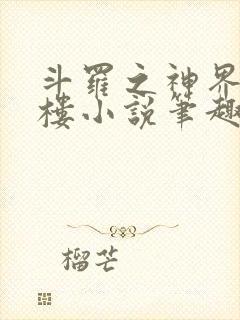 斗羅之神界
樓小說筆趣
榴芒